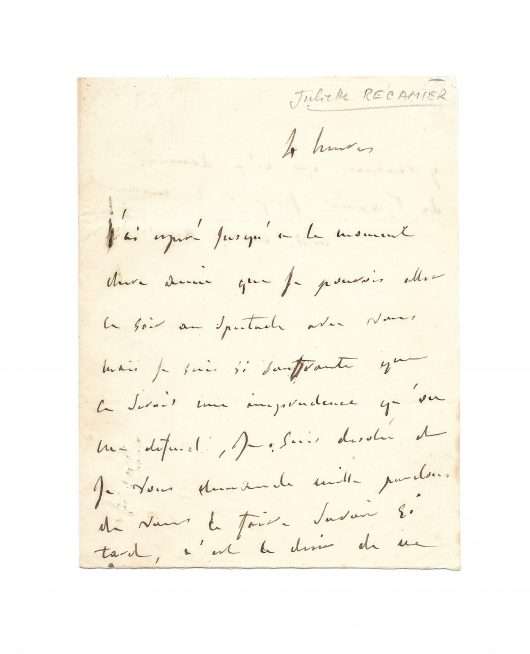 Juliette RÉCAMIER
4 heures
J'ai espéré jusqu'à ce moment
chère amie que je pourois aller
ce soir au spectacle avec vous
mais je suis si souffrante que
ce serois une imprudence qu'on
me défend, je suis désolée et
je vous demande mille pardons
de vous le faire savoir si
tard, c'est le désir de ne